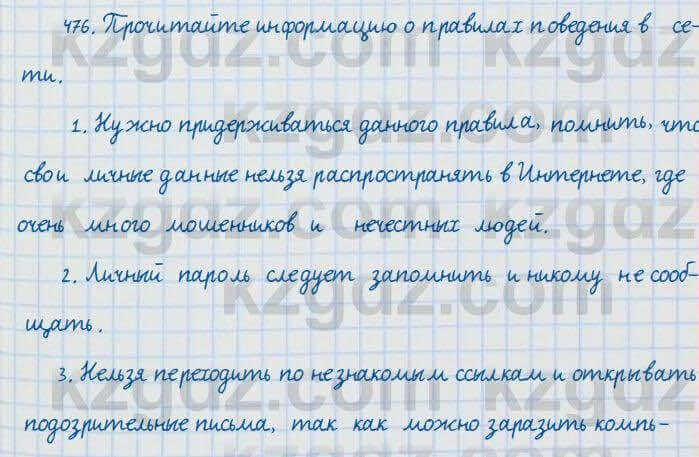 476. Прочитайте информацию о правилах поведения в се-
ти.
1. Нужно придерживаться данного правила, помнить, что
свои личные данные нельзя распространять в Интернете, где
очень много мошенников и нечестных людей.
2. Личный пароль следует запомнить и никому не сооб-
щать.
3. Нельзя переходить по незнакомым ссылкам и открывать
подозрительные письма, так как можно заразить компь-
kzgdz.com
kzgdz.com
kzgdz.com
kzgdz.com